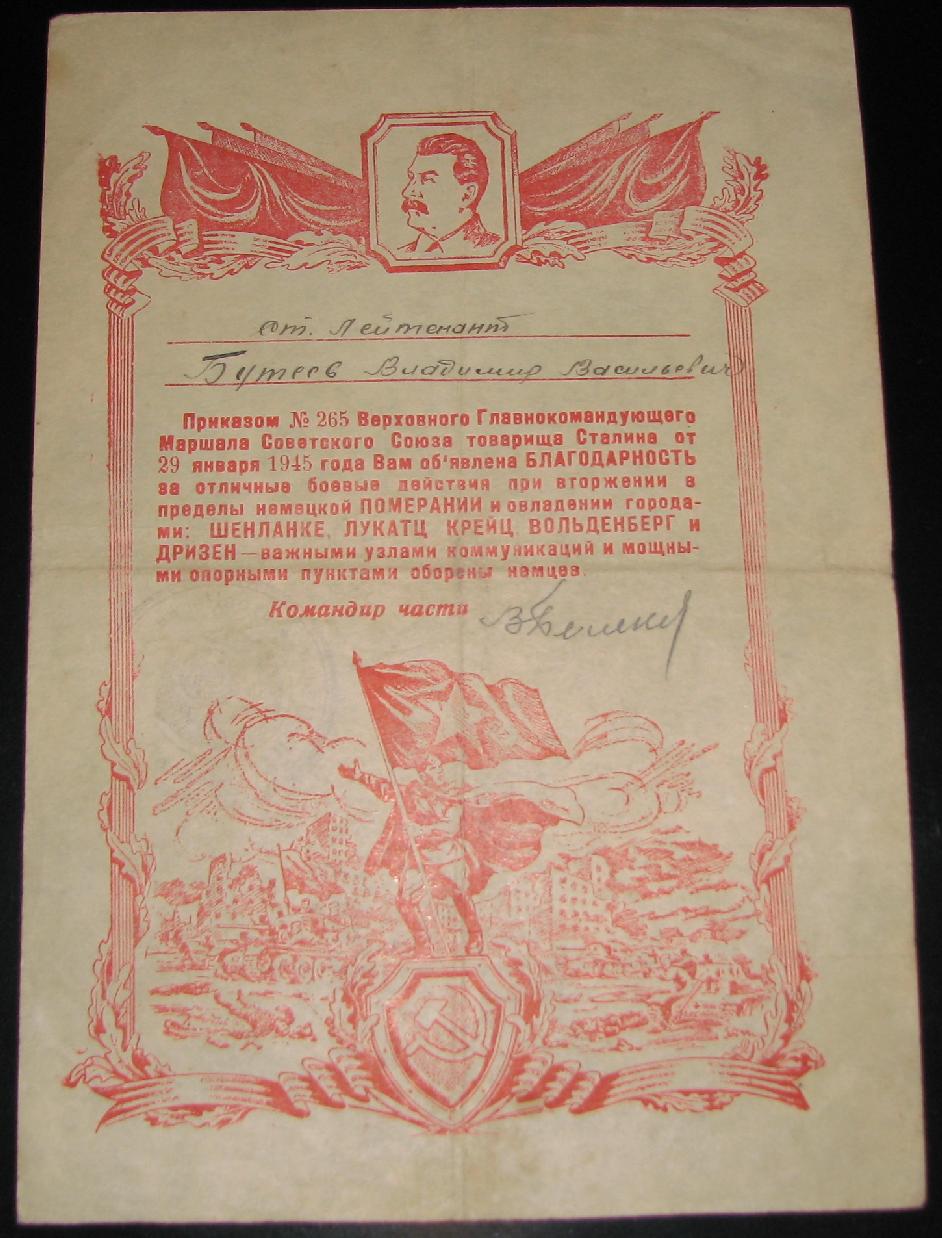 Ст. Лейтенант
Бутеев Владимир Васильевич
Приказом № 265 Верховного Главнокомандующего
Маршала Советского Союза товарища Сталина от
29 января 1945 года Вам об'явлена БЛАГОДАРНОСТЬ
за отличные боевые действия при вторжении в
пределы немецкой ПОМЕРАНИИ и овладении города-
ми: ШЕНЛАНКЕ, ЛУКАТЦ, КРЕЙЦ, ВОЛЬДЕНБЕРГ и
ДРИЗЕН — важными узлами коммуникаций и мощны-
ми опорными пунктами обороны немцев.
Командир части